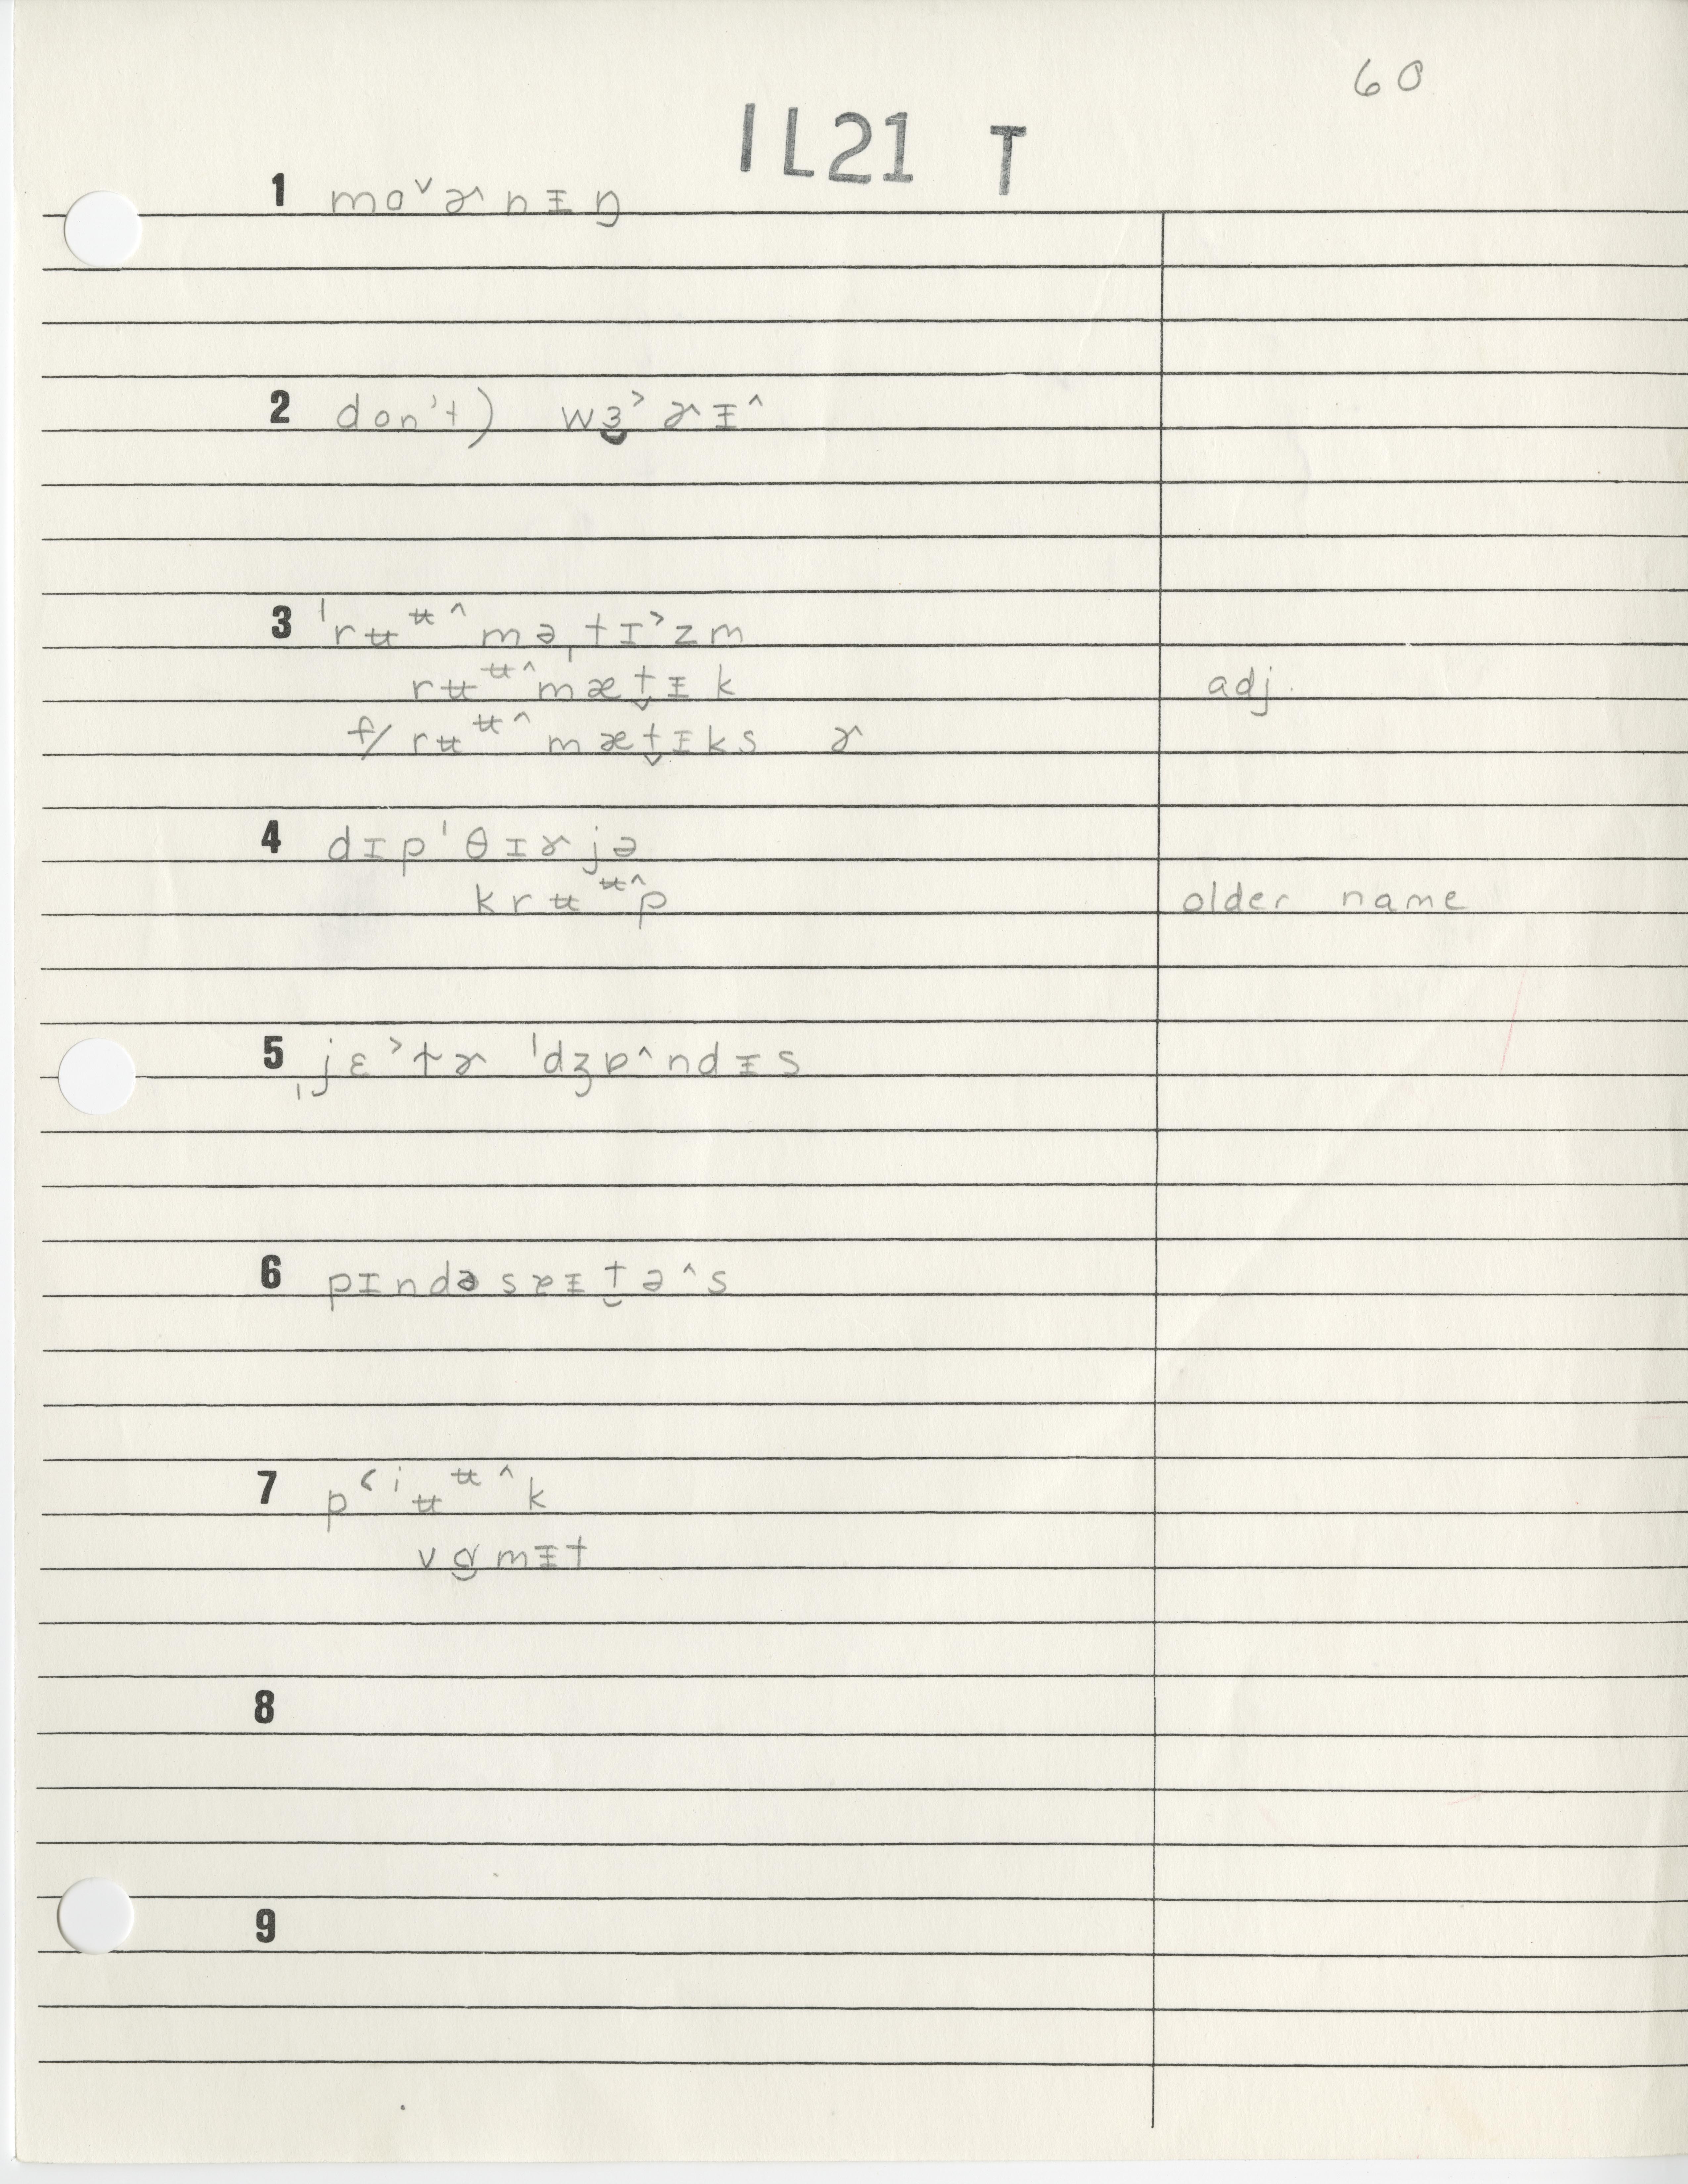 60
IL21 T
1 moˇɚnᵻŋ
2 don't) wɜ̮˃ɚᵻ^
3 ˈrʉᵘ̵^məˌtɪ˃zm
rʉᵘ̵^mæt̬ᵻk adj.
f/ rʉᵘ̵^mæt̬ᵻks ɚ
4 dɪpˈθɪɚjə
krʉᵘ̵^p older name
5 ˌjɛ˃tɚ ˈdʒɒ^ndᵻs
6 pɪndəsɐᵻt̮ə^s
7 p˂ⁱʉᵘ̵^k
vɑ̮mᵻt
8
9